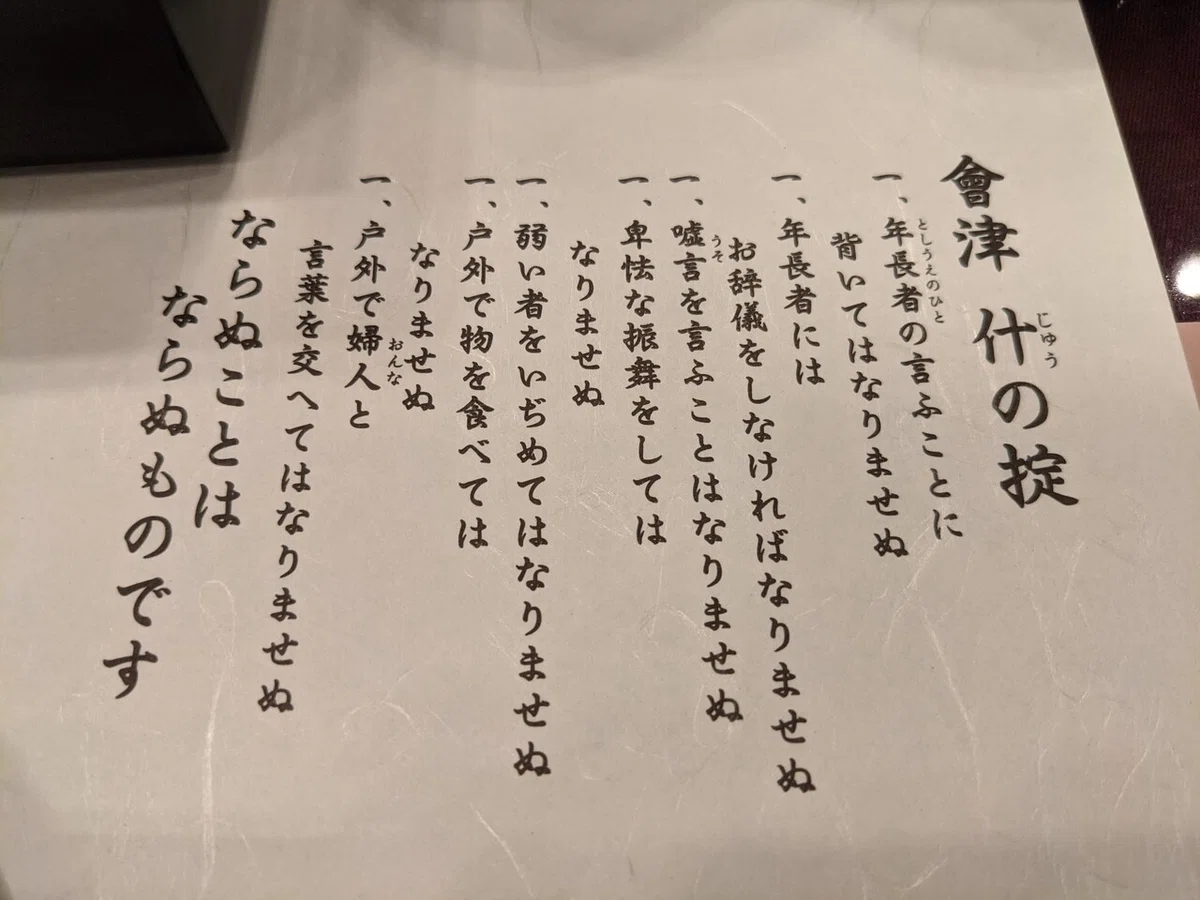 會津 什の掟
じゅう
一、年長者の言ふことに
としうえのひと
背いてはなりませぬ
一、年長者には
お辞儀をしなければなりませぬ
一、嘘言を言ふことはなりませぬ
うそ
一、卑怯な振舞をしては
なりませぬ
一、弱い者をいぢめてはなりませぬ
一、戸外で物を食べては
なりませぬ
一、戸外で婦人と
おんな
言葉を交へてはなりませぬ
ならぬことは
ならぬものです